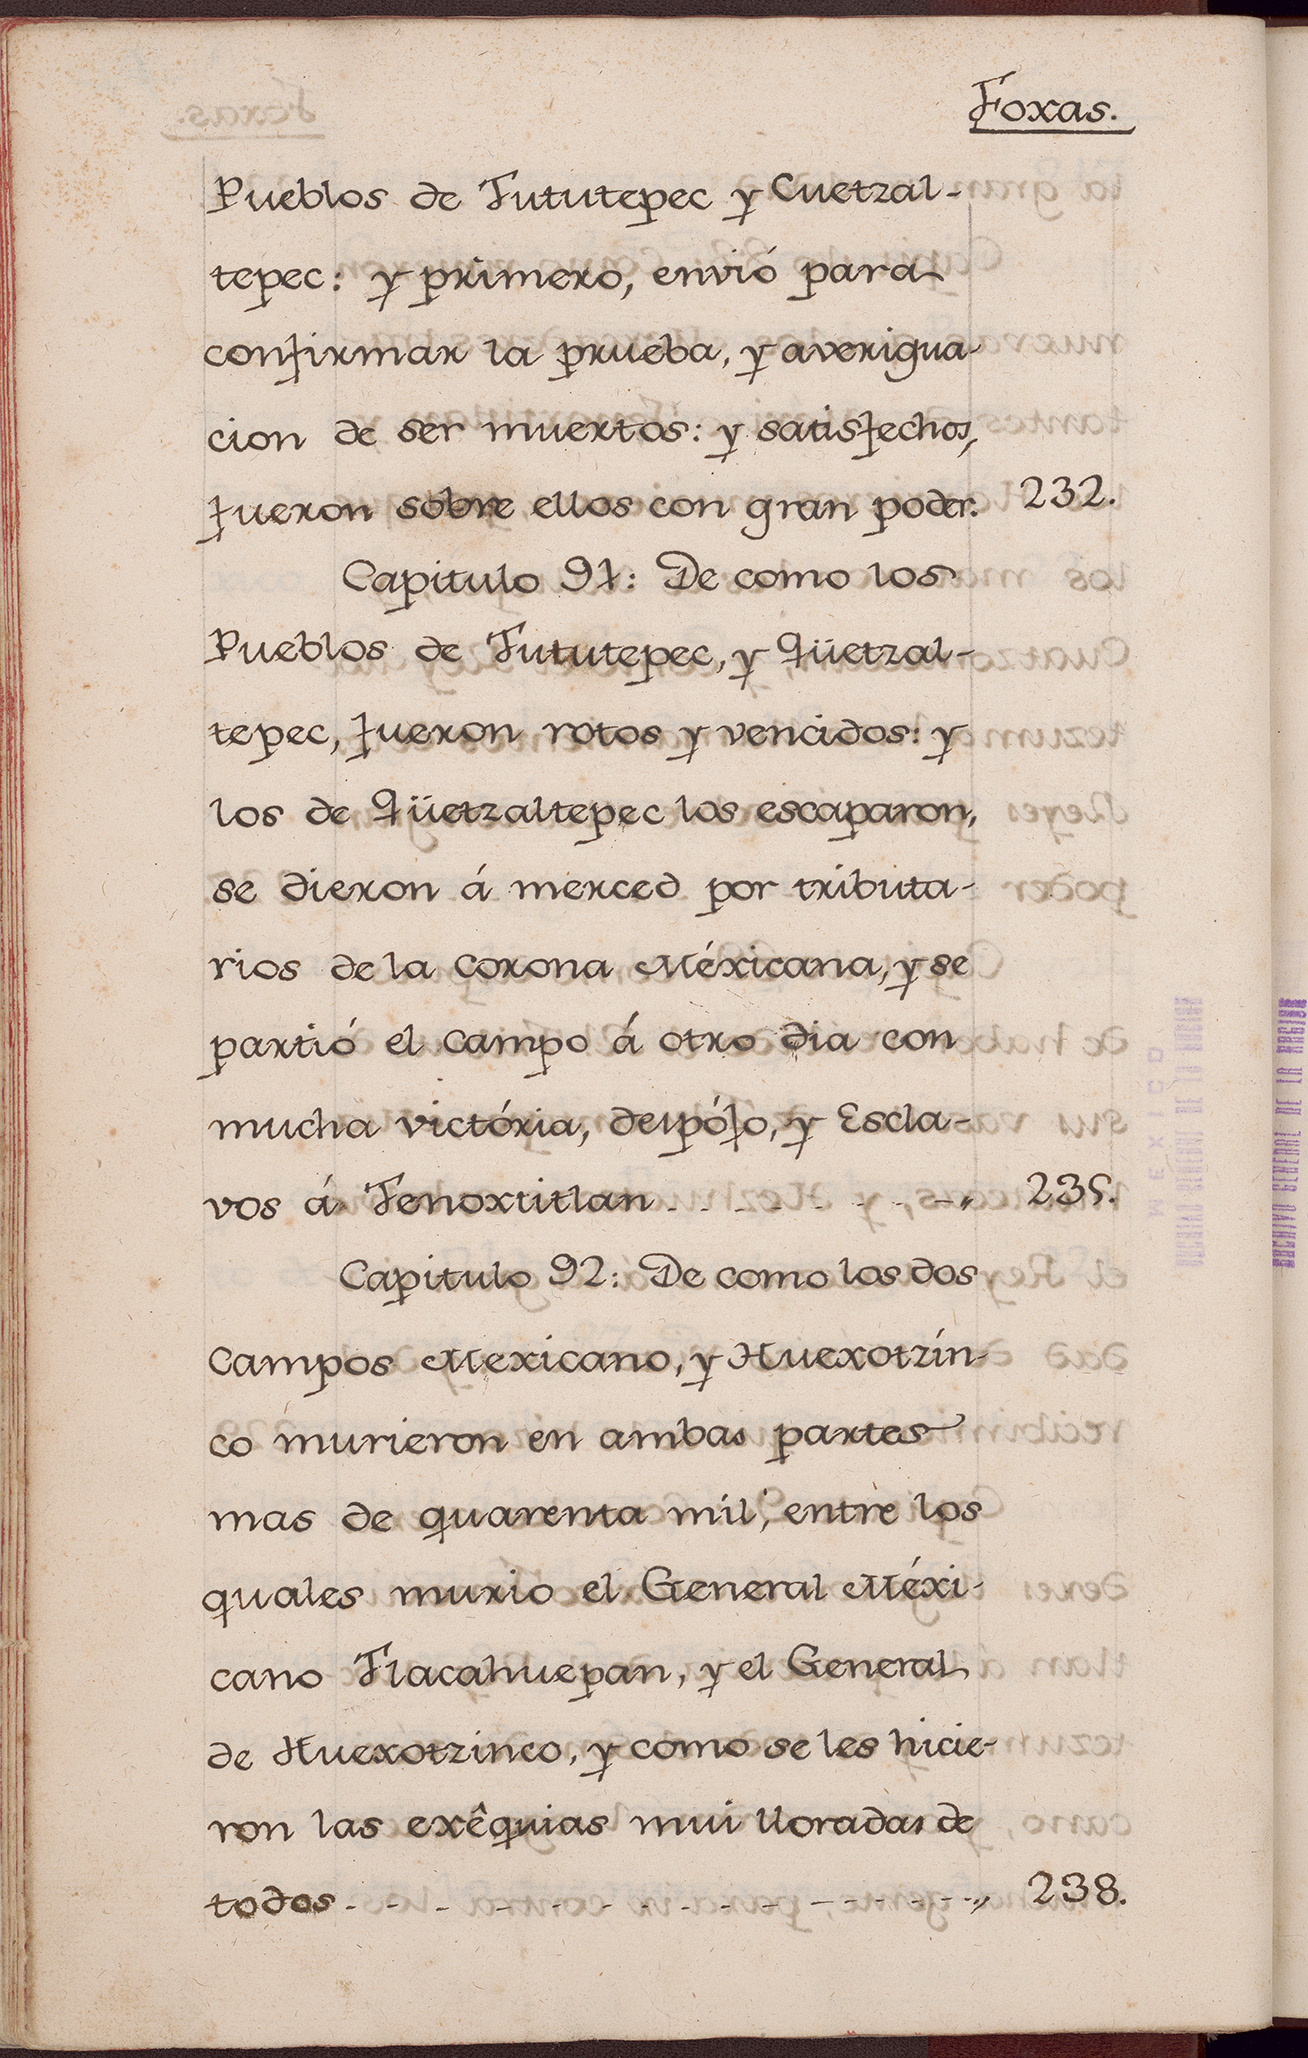 Foxas.
Pueblos de Tututepec y Cuetzal-
tepec: y primero, envió para
confirmar la prueba, y averigua-
cion de ser muertos: y satisfechos,
fueron sobre ellos con gran poder. 232.
Capitulo 91: De como los
Pueblos de Tututepec, y Qüetzal-
tepec, fueron rotos y vencidos: y
los de Qüetzaltepec los escaparon,
se dieron á merced por tributa-
rios de la Corona Méxicana, y se
partió el Campo á otro dia con
mucha victória, despójo, y Escla-
vos á Tenoxtitlan - - - - - - - - - „ 235.
Capitulo 92: De como los dos
Campos Mexicano, y Huexotzin-
co murieron en ambas partes
mas de quarenta mil, entre los
quales murio el General Méxi-
cano Tlacahuepan, y el General
de Huexotzinco, y como se les hicie-
ron las exêquias mui lloradas de
todos - - - - - - - - - - - - - - - „ 238.
ARCHIVO GENERAL DE LA NACION